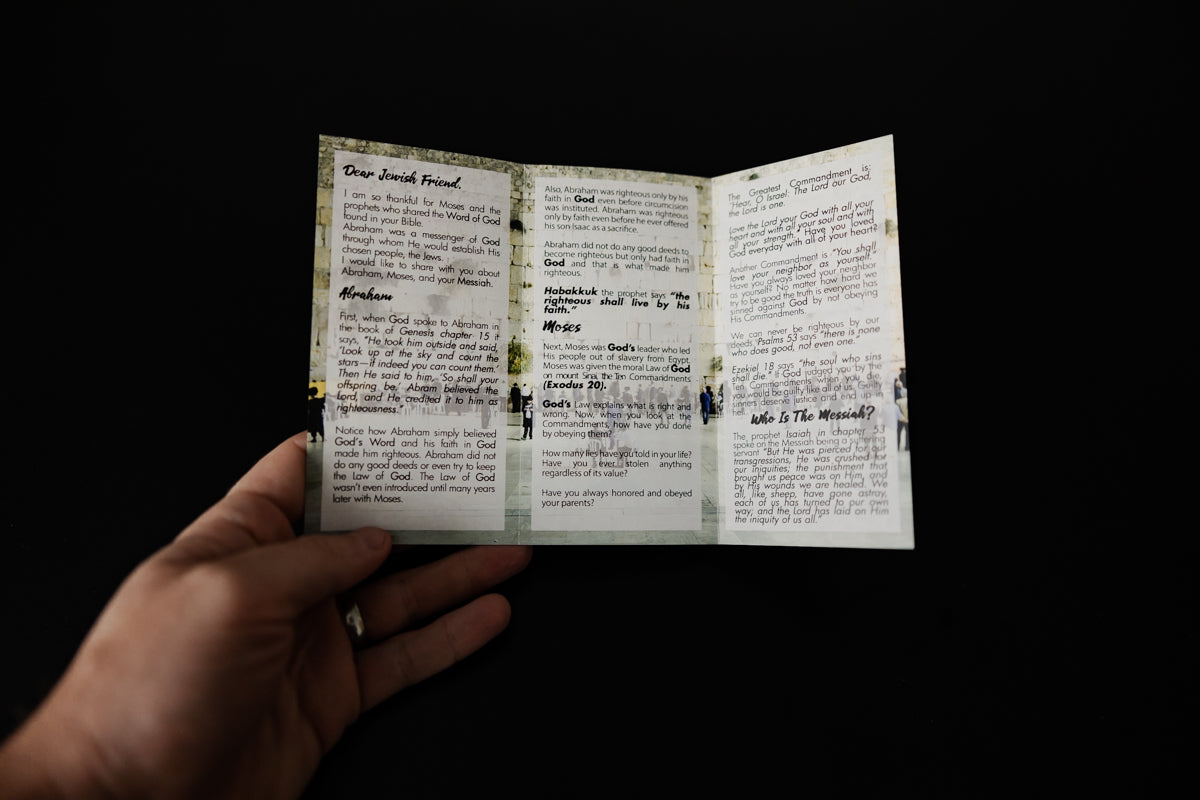 Dear Jewish Friend,
I am so thankful for Moses and the
prophets who shared the Word of God
found in your Bible.
Abraham was a messenger of God
through whom He would establish His
chosen people, the Jews.
I would like to share with you about
Abraham, Moses, and your Messiah.
Abraham
First, when God spoke to Abraham in
the book of Genesis chapter 15 it
says, "He took him outside and said,
'Look up at the sky and count the
stars—if indeed you can count them.'
Then He said to him, 'So shall your
offspring be.' Abram believed the
Lord, and He credited it to him as
righteousness."
Notice how Abraham simply believed
God's Word and his faith in God
made him righteous. Abraham did not
do any good deeds or even try to keep
the Law of God. The Law of God
wasn't even introduced until many years
later with Moses.
Also, Abraham was righteous only by his
faith in God even before circumcision
was instituted. Abraham was righteous
only by faith even before he ever offered
his son Isaac as a sacrifice.
Abraham did not do any good deeds to
become righteous but only had faith in
God and that is what made him
righteous.
Habakkuk the prophet says "the
righteous shall live by his
faith."
Moses
Next, Moses was God's leader who led
His people out of slavery from Egypt.
Moses was given the moral Law of God
on mount Sinai, the Ten Commandments
(Exodus 20).
God's Law explains what is right and
wrong. Now, when you look at the
Commandments, how have you done
by obeying them?
How many lies have you told in your life?
Have you ever stolen anything
regardless of its value?
Have you always honored and obeyed
your parents?
The Greatest Commandment is:
"Hear, O Israel: The Lord our God,
the Lord is one.
Love the Lord your God with all your
heart and with all your soul and with
all your strength." Have you loved
God everyday with all of your heart?
Another Commandment is "You shall
love your neighbor as yourself."
Have you always loved your neighbor
as yourself? No matter how hard we
try to be good the truth is everyone has
sinned against God by not obeying
His Commandments.
We can never be righteous by our
deeds, Psalms 53 says "there is none
who does good, not even one."
Ezekiel 18 says "the soul who sins
shall die." If God judged you by the
Ten Commandments when you die,
you would be guilty like all of us. Guilty
sinners deserve justice and end up in
hell.
Who Is The Messiah?
The prophet Isaiah in chapter 53
spoke on the Messiah being a suffering
servant "But He was pierced for our
transgressions, He was crushed for
our iniquities; the punishment that
brought us peace was on Him, and
by His wounds we are healed. We
all, like sheep, have gone astray,
each of us has turned to our own
way; and the Lord has laid on Him
the iniquity of us all."